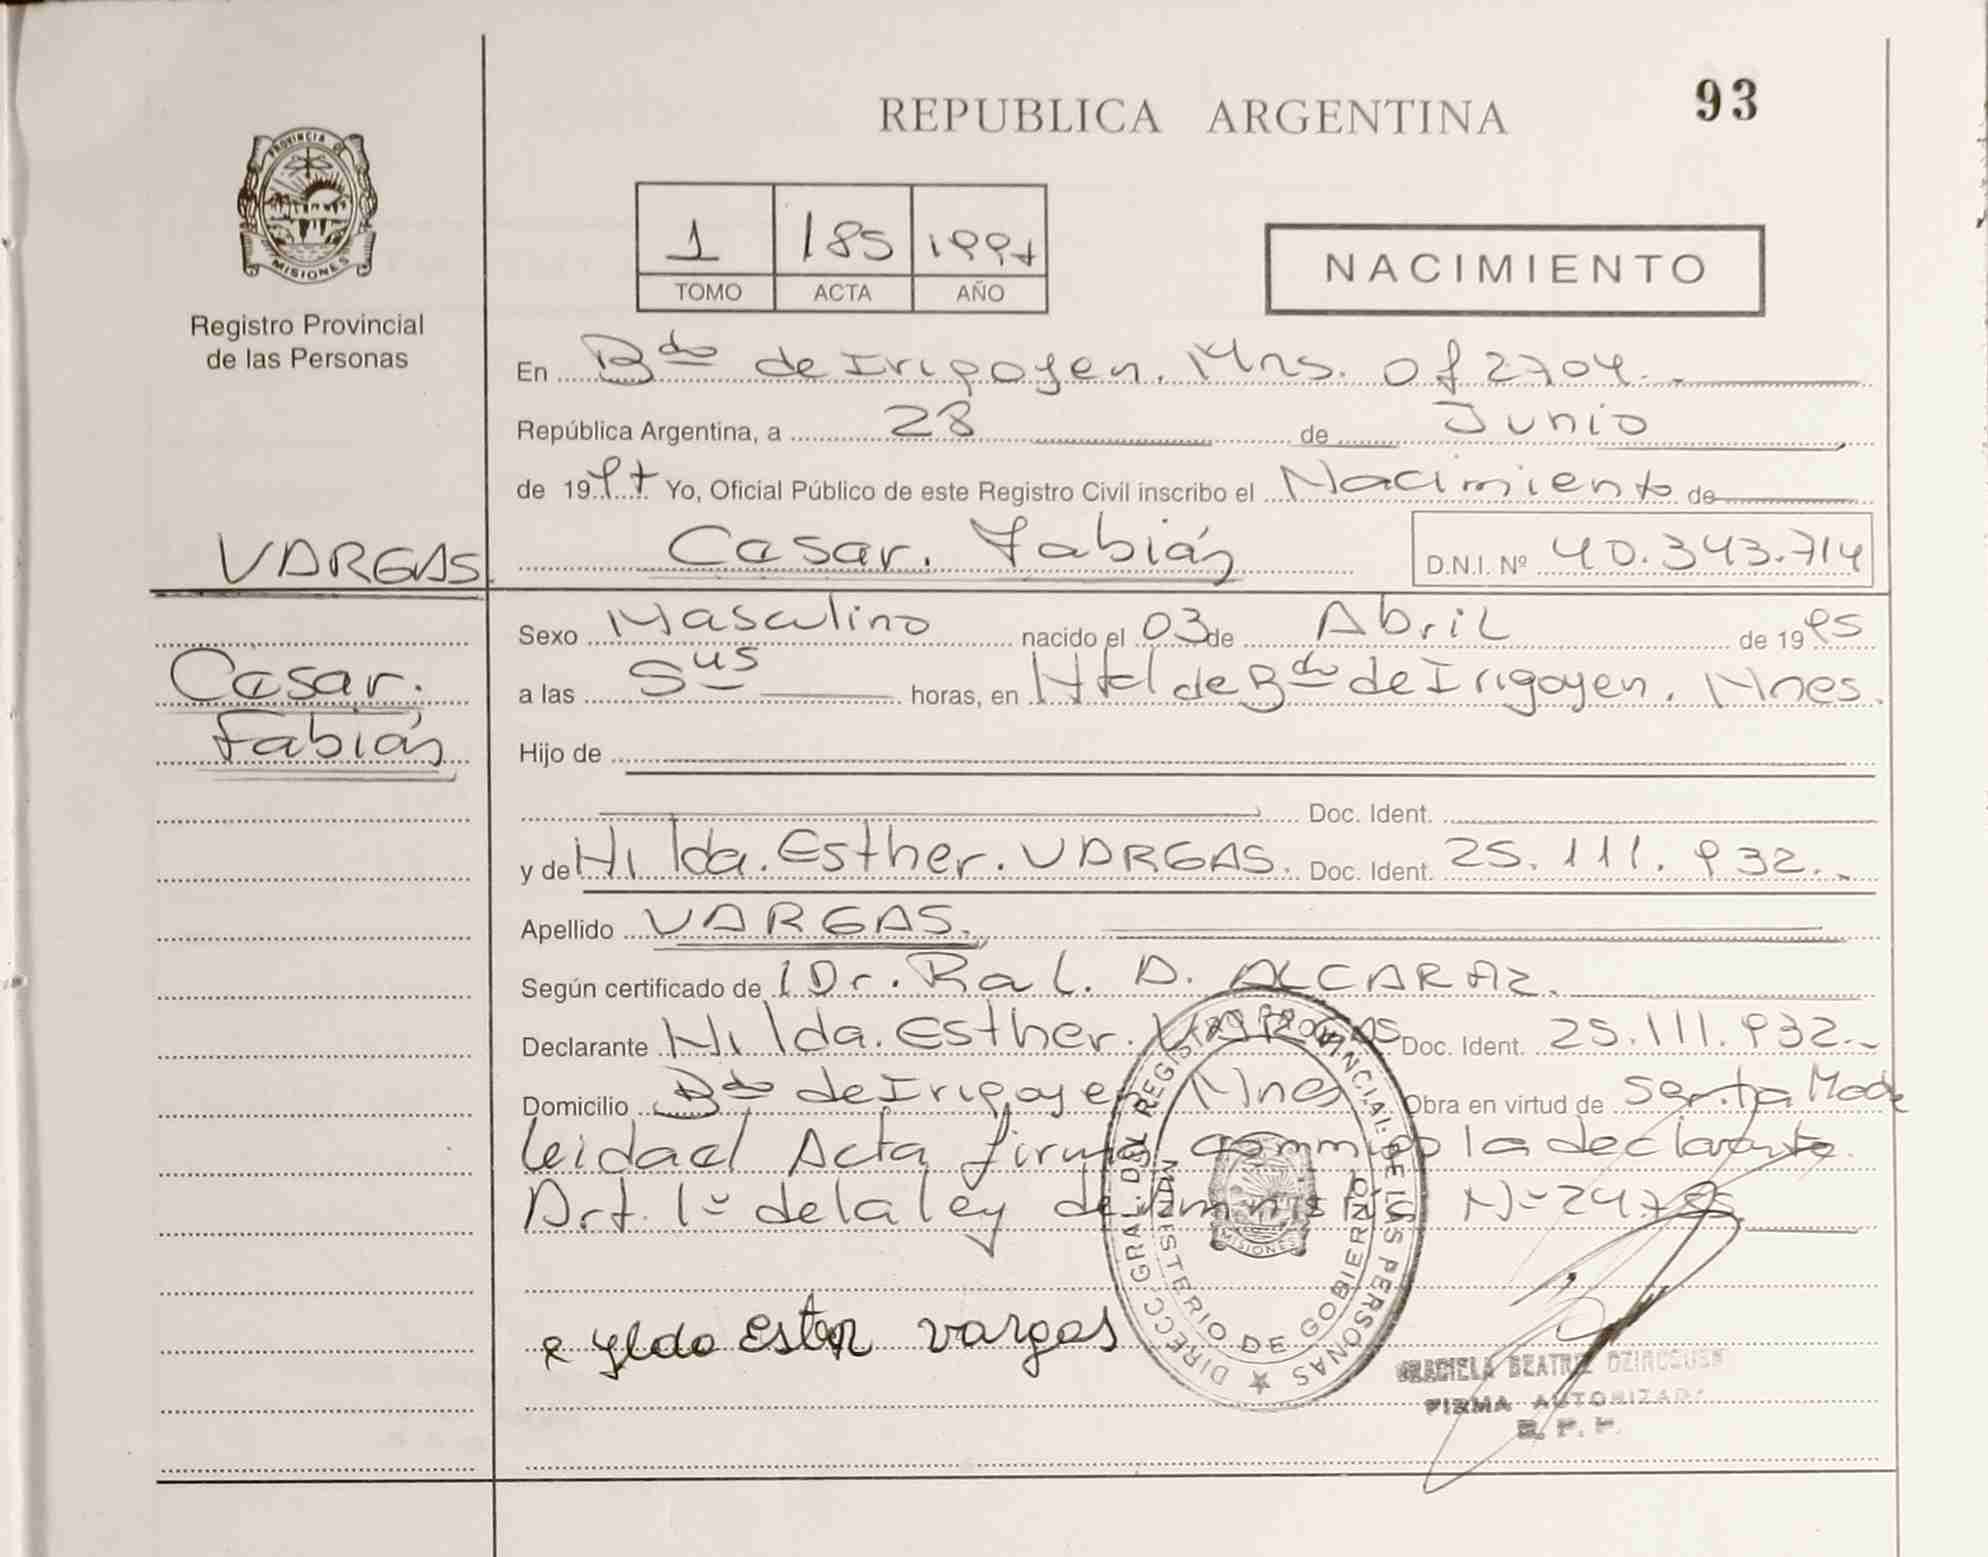 REPUBLICA ARGENTINA
93
PROVINCIA DE
MISIONES
Registro Provincial
de las Personas
1 185 1997
TOMO ACTA AÑO
NACIMIENTO
En Bdo de Irigoyen. Mns. Of 2704.
República Argentina, a 28 de Junio
de 1997 Yo, Oficial Público de este Registro Civil inscribo el Nacimiento de
VARGAS
Cesar. Fabián D.N.I. Nº 40.343.714
Sexo Masculino nacido el 03 de Abril de 1995
Cesar.
Fabián
a las 5us horas, en Htal de Bdo de Irigoyen. Mnes.
Hijo de
Doc. Ident.
y de Hilda. Esther. VARGAS. Doc. Ident. 25.111.932.
Apellido VARGAS.
Según certificado de Dr. Ral. D. ALCARAZ.
Declarante Hilda. Esther. VARGAS Doc. Ident. 25.111.932.
Domicilio Bdo de Irigoyen Mnes Obra en virtud de Senta Mode
leidad Acta firma conmigo la declarante.
Art. 1º de la ley de Amnistía Nº 24.755
DIRECC. GRAL. DEL REGISTRO PROVINCIAL DE LAS PERSONAS
MINISTERIO DE GOBIERNO
MISIONES
vargas
GRACIELA BEATRIZ
FIRMA AUTORIZADA
R. P. P.